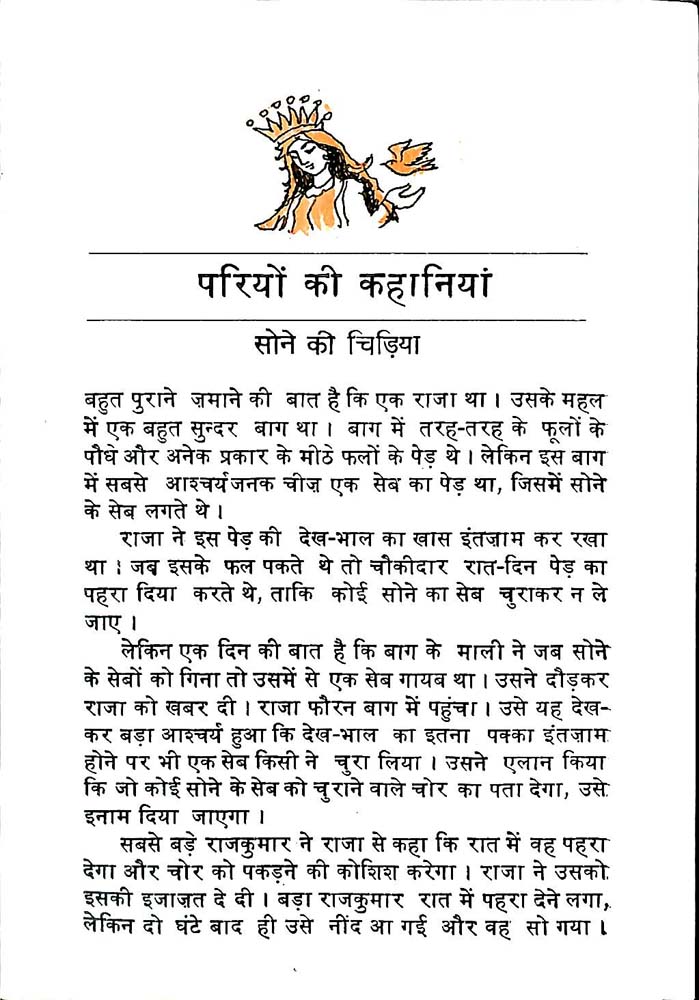 परियों की कहानियां
सोने की चिड़िया
बहुत पुराने ज़माने की बात है कि एक राजा था । उसके महल
में एक बहुत सुन्दर बाग था । बाग में तरह-तरह के फूलों के
पौधे और अनेक प्रकार के मीठे फलों के पेड़ थे । लेकिन इस बाग
में सबसे आश्चर्यजनक चीज़ एक सेब का पेड़ था, जिसमें सोने
के सेब लगते थे ।
राजा ने इस पेड़ की देख-भाल का खास इंतज़ाम कर रखा
था । जब इसके फल पकते थे तो चौकीदार रात-दिन पेड़ का
पहरा दिया करते थे, ताकि कोई सोने का सेब चुराकर न ले
जाए ।
लेकिन एक दिन की बात है कि बाग के माली ने जब सोने
के सेबों को गिना तो उसमें से एक सेब गायब था । उसने दौड़कर
राजा को खबर दी । राजा फौरन बाग में पहुंचा । उसे यह देख-
कर बड़ा आश्चर्य हुआ कि देख-भाल का इतना पक्का इंतज़ाम
होने पर भी एक सेब किसी ने चुरा लिया । उसने एलान किया
कि जो कोई सोने के सेब को चुराने वाले चोर का पता देगा, उसे
इनाम दिया जाएगा ।
सबसे बड़े राजकुमार ने राजा से कहा कि रात में वह पहरा
देगा और चोर को पकड़ने की कोशिश करेगा । राजा ने उसको
इसकी इजाज़त दे दी । बड़ा राजकुमार रात में पहरा देने लगा,
लेकिन दो घंटे बाद ही उसे नींद आ गई और वह सो गया ।